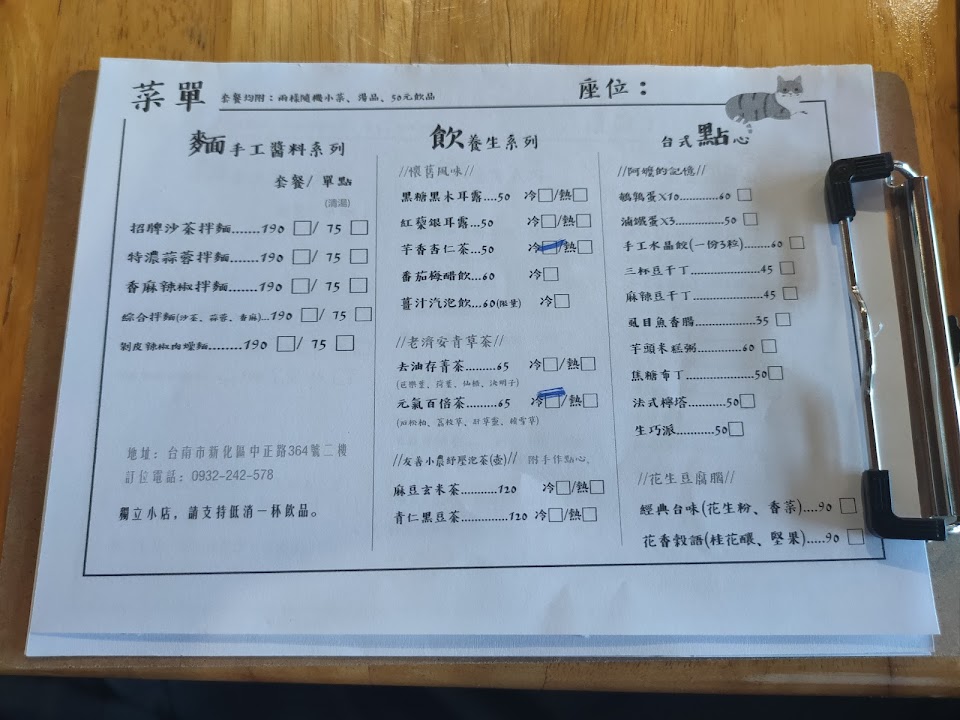 菜單 套餐均附：兩樣隨機小菜、湯品、50元飲品
座位：
麵 手工醬料系列
套餐/ 單點
(湯湯)
招牌沙茶拌麵.......190 □/ 75 □
特濃蒜蓉拌麵.......190 □/ 75 □
香麻辣椒拌麵.......190 □/ 75 □
綜合拌麵(沙茶、蒜蓉、香麻)...190 □/ 75 □
剝皮辣椒肉燥麵.......190 □/ 75 □
地址: 台南市新化區中正路364號二樓
訂位電話: 0932-242-578
獨立小店，請支持低消一杯飲品。
飲 養生系列
//懷舊風味//
黑糖黑木耳露....50 冷□/熱□
紅藜銀耳露.....50 冷□/熱□
芋香杏仁茶...50 冷□/熱□
番茄梅醋飲...60 冷□
薑汁汽泡飲...60(限量) 冷□
//老濟安青草茶//
去油存菁茶.........65 冷□/熱□
(芭樂葉、荷葉、仙楂、決明子)
元氣百倍茶.........65 冷□/熱□
/友善小農紓壓泡茶(壺)// 附手作點心、
麻豆玄米茶...........120 冷□/熱□
青仁黑豆茶...........120 冷□/熱□
台式 點心
//阿嬤的記憶//
鵪鶉蛋X10...........60 □
滷鐵蛋X3..........50 □
手工水晶餃(一份3粒)........60 □
三杯豆干丁..............45 □
麻辣豆干丁..............45 □
虱目魚香腸..............35 □
芋頭米糕粥...........60 □
焦糖布丁..............50□
法式檸塔..........50□
生巧派..........50□
//花生豆腐腦//
經典台味(花生粉、香菜)....90 □
花香穀語(桂花釀、堅果).....90 □